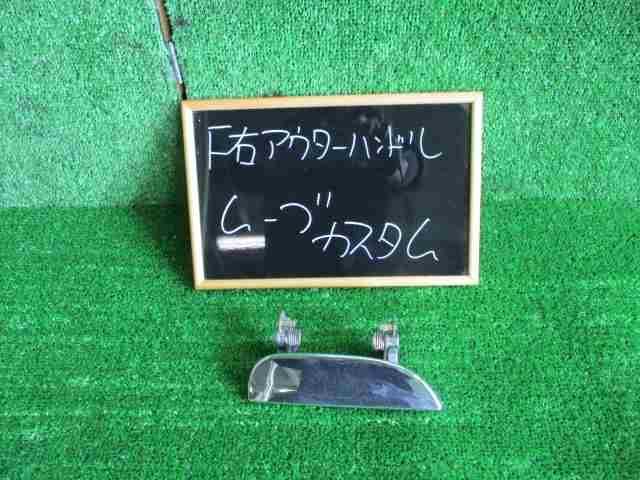 F右アウターハンドル
ムーヴ
カスタム